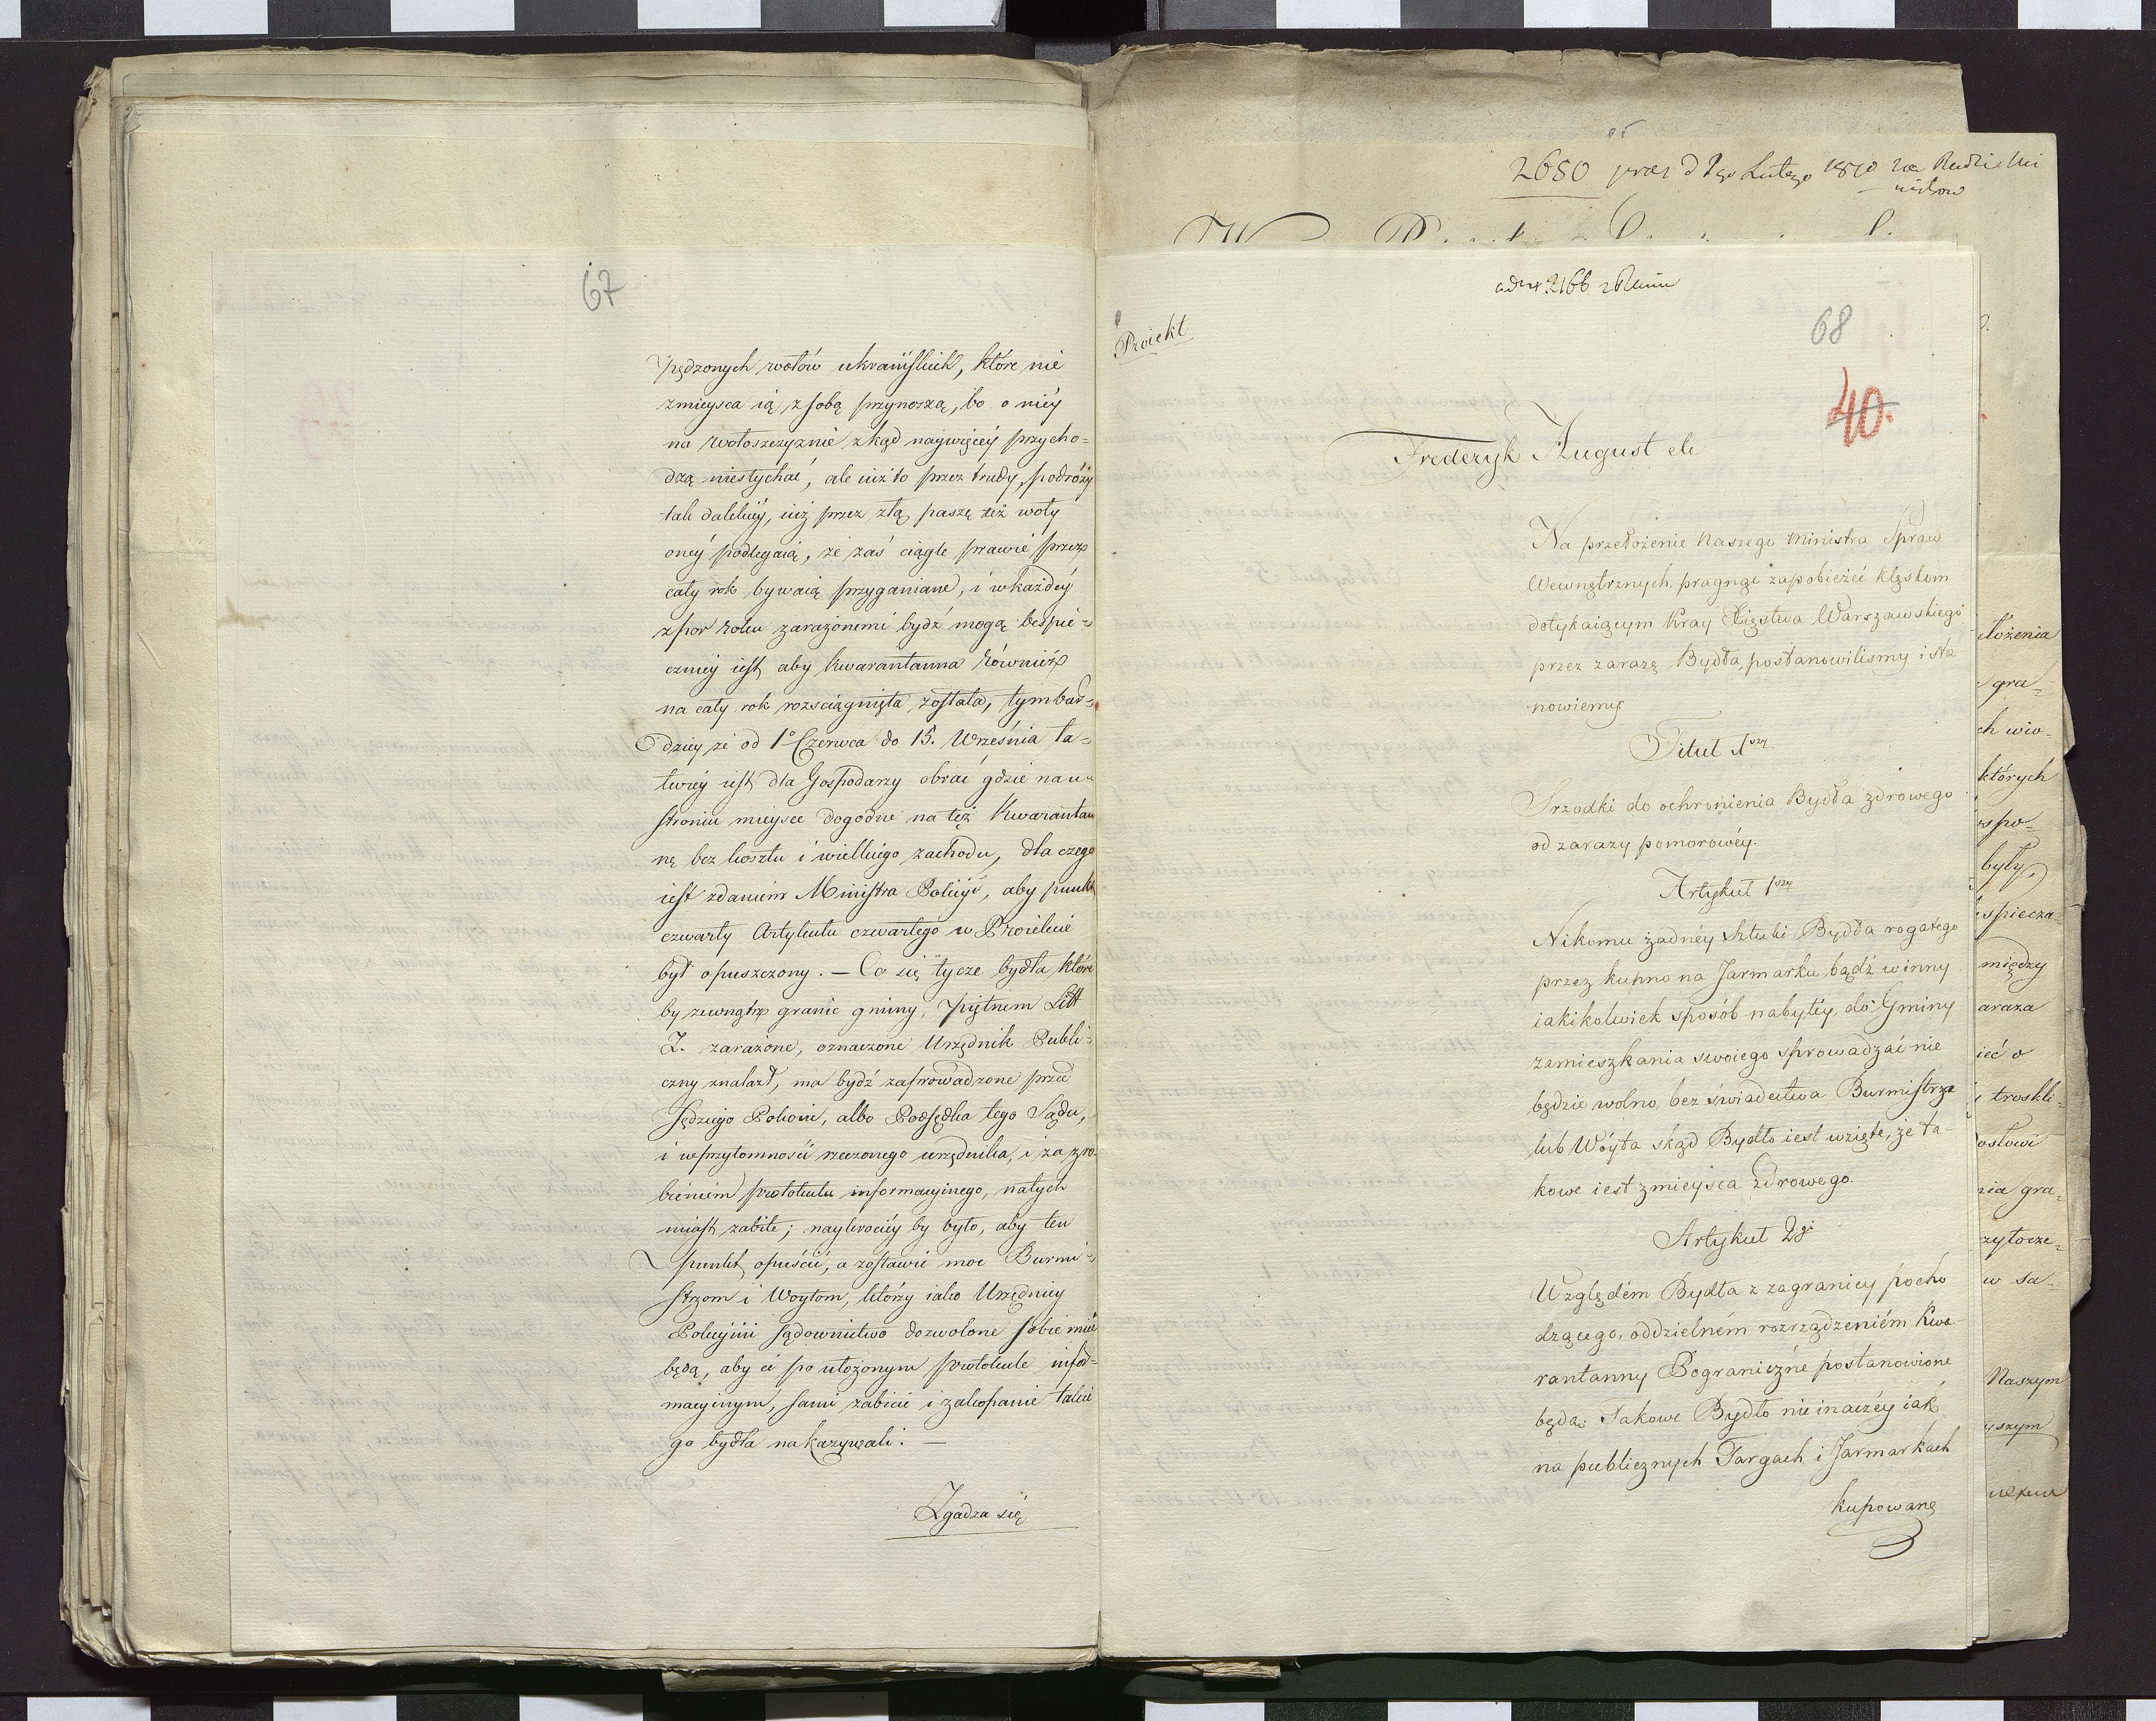 67
pędzonych wołów ukraińskich, które nie
zmieysca ią z sobą przynoszą, bo o niéy
na Wołoszczyznie zkąd naywięcéy przycho=
dzą niesłychać, ale iuż to przez trudy, podróży
tak dalekiéy, iuż przez złą paszę też woły
onéy podlegaią, że zaś ciągle prawie przez
cały rok bywaią przyganiane, i w każdéy
z por roku zarażonemi bydź mogą bespie=
czniéy iest, aby kwarantanna również
na cały rok rozściągnięta została, tym bar=
dziéy że od 1° Czerwca do 15. Września ła=
twiéy iest dla Gospodarzy obrać gdzie na u=
stroniu mieysce dogodne na też Kwarantan
nę bez kosztu i wielkiego zachodu, dla czego
iest zdaniem Ministra Policyi, aby punkt
czwarty Artykułu czwartego w Proiekcie
był opuszczony. — Co się tycze bydła które
by zewnątrz granic gminy, piętnem Litt
Z. zarażone, oznaczone Urzędnik Publi=
czny znalazł, ma bydź zaprowadzone przed
Sędziego Pokoiu, albo Podsędka tego Sądu,
i w przytomności rzeczonego urzędnika, i za zro=
bieniem protokułu informacyinego, natych
miast zabite; naykrócéy by było, aby ten
punkt opuścić, a zostawić moc Burmi=
strzom i Woytom, którzy iako Urzędnicy
Policyini sądownictwo dozwolone sobie mieć
będą, aby ci po ułożonym protokule infor=
macyinym, sami zabicie i zakopanie takie
go bydła nakazywali. —
Zgadza się
2680 praes d 1go Lutego 1810 na Radzie Mi
nistrow
ad N 2166
Proiekt
68
40.
Frederyk August etc
Na przełożenie Naszego Ministra Spraw
Wewnętrznych, pragnąc zapobieżeć klęskom
dotykaiącym Kray Xięstwa Warszawskiego
przez zarazę Bydła, postanowilismy i sta
nowiemy
Titul 1szy
Srzodki do ochronienia Bydła zdrowego
od zarazy pomorowéy.
Artykuł 1szy
Nikomu żadnéy sztuki Bydła rogatego
przez kupno na Jarmarku, bądź w inny
iakikolwiek sposób nabytéy, do Gminy
zamieszkania swoiego sprowadzać nie
będzie wolno, bez świadectwa Burmistrza
lub Wóyta skąd Bydło iest wzięte, że ta-
kowe iest z mieysca Zdrowego.
Artykuł 2gi
Względém Bydła z zagranicy pocho
dzącego, oddzielném rozrządzeniém Kwa-
rantanny Pograniczne postanowione
będą. Takowe Bydło nie inaczéy iak
na publicznych Targach i Jarmarkach
kupowane
ełożenia
gra=
ch wio-
których
spo=
były,
spiecza=
między
araza
ieć o
troskli=
osłowi
nia gra=
zytocze=
w sa=
Naszym
yszym